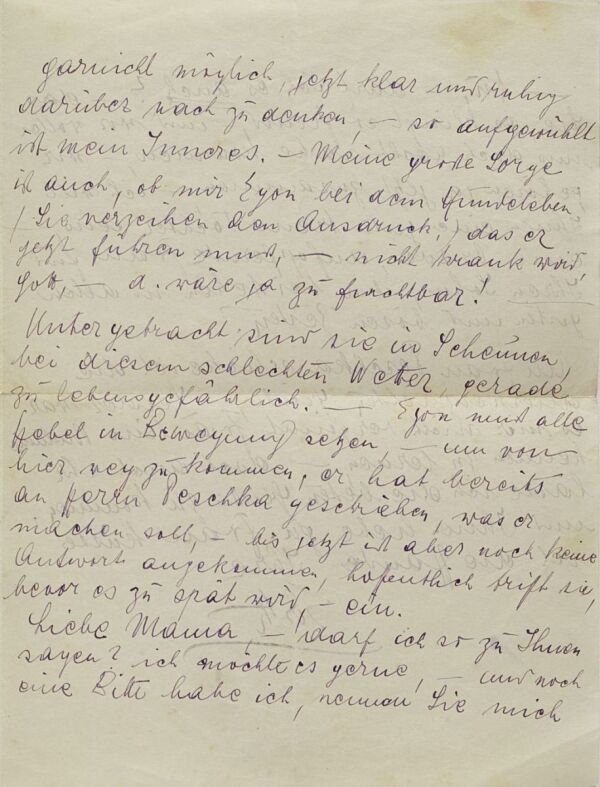 garnicht möglich, jetzt klar und ruhig
darüber nach zu denken, – so aufgewühlt
ist mein Inneres. – Meine große Sorge
ist auch, ob mir Egon bei dem Hundeleben
/ Sie verzeihen den Ausdruck, / das er
jetzt führen muß, – nicht krank wird,
Gott, – d. wäre ja zu furchtbar!
Untergebracht sind sie in Scheunen,
bei diesem schlechten Wetter, gerade
zu lebensgefährlich. – Egon muß alle
Hebel in Bewegung setzen, – um von
hier weg zu kommen, er hat bereits
an Herrn Peschka geschrieben, was er
machen soll, – bis jetzt ist aber noch keine
Antwort angekommen, hofentlich trift sie,
bevor es zu spät wird, – ein.
Liebe Mama, – darf ich so zu Ihnen
sagen? ich möchte es gerne, – und noch
eine Bitte habe ich, nennen Sie mich